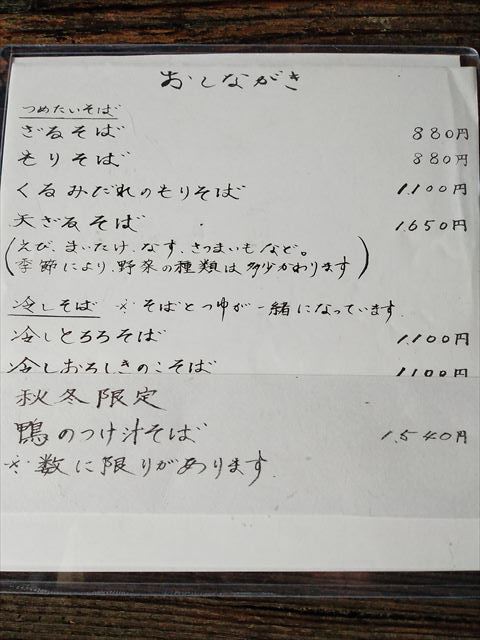 おしながき
つめたいそば
ざるそば 880円
もりそば 880円
くるみだれのもりそば 1.100円
天ざるそば 1.650円
(えび、まいたけ、なす、さつまいもなど。
季節により、野菜の種類は多少かわります)
冷しそば ※そばとつゆが一緒になっています.
冷しとろろそば 1.100円
冷しおろしきのこそば 1.100円
秋冬限定
鴨のつけ汁そば 1.540円
※数に限りがあります.